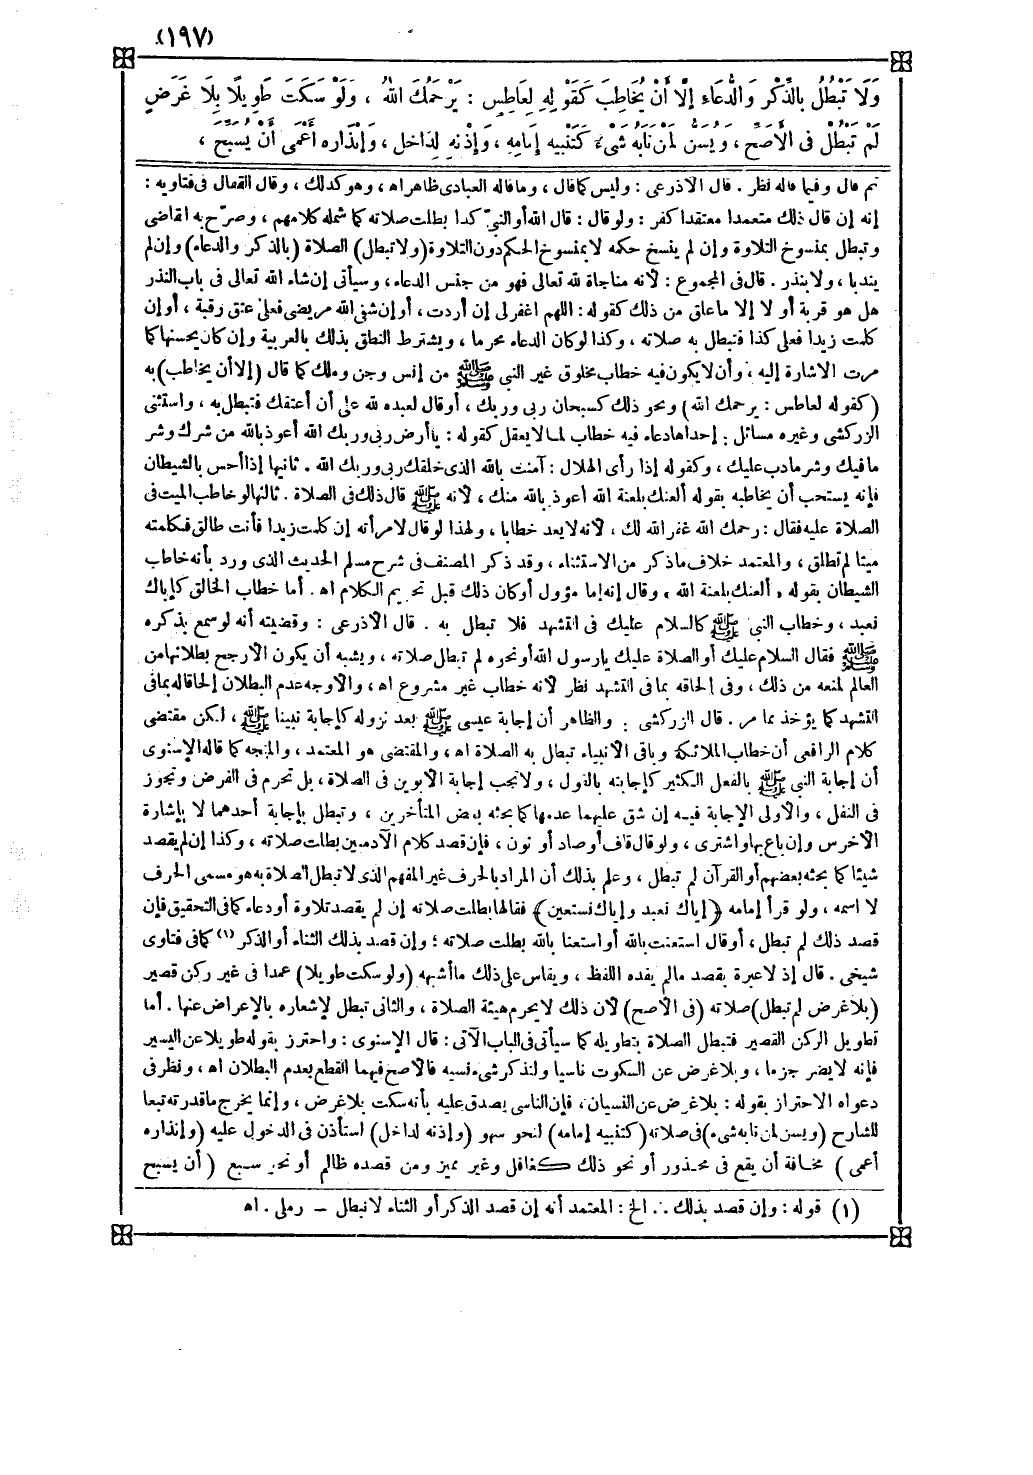 (١٩٧)
وَلَا تَبْطُلُ بِالذِّكْرِ وَالدُّعَاءِ إلَّا أَنْ يُخَاطِبَ كَقَوْلِهِ لِعَاطِسٍ : يَرْحَمُكَ اللهُ ، وَلَوْ سَكَتَ طَوِيلًا بِلَا غَرَضٍ
لَمْ تَبْطُلْ فِى الْأَصَحِّ ، وَيُسَنُّ لِمَنْ نَابَهُ شَىْءٌ كَتَنْبِيهِ إمَامِهِ ، وَإِذْنِهِ لِدَاخِلٍ ، وَإنْذَارِهِ أَعْمَى أَنْ يُسَبِّحَ ،
ثم قال وفيما قاله نظر . قال الأذرعى : وليس كما قال ، وما قاله العبادى ظاهر اه ، وهو كذلك ، وقال القفال فى فتاويه :
إنه إن قال ذلك متعمدا معتقدا كفر : ولو قال : قال الله أو النبىّ كذا بطلت صلاته كما شمله كلامهم ، وصرّح به القاضى
وتبطل بمنسوخ التلاوة وإن لم ينسخ حكمه لا بمنسوخ الحكم دون التلاوة (ولا تبطل) الصلاة (بالذكر والدعاء) وإن لم
يندبا ، ولا بنذر . قال فى المجموع : لأنه مناجاة لله تعالى فهو من جنس الدعاء ، وسيأتى إن شاء الله تعالى فى باب النذر
هل هو قربة أو لا إلا ما علق من ذلك كقوله : اللهم اغفر لى إن أردت ، أو إن شفى الله مريضى فعلىّ عتق رقبة ، أو إن
كلمت زيدا فعلى كذا فتبطل به صلاته ، وكذا لو كان الدعاء محرما ، ويشترط النطق بذلك بالعربية وإن كان يحسنها كما
مرت الاشارة إليه ، وأن لا يكون فيه خطاب مخلوق غير النبى ﷺ من إنس وجن وملك كما قال (إلا أن يخاطب) به
(كقوله لعاطس : يرحمك الله) ونحو ذلك كسبحان ربى وربك ، أو قال لعبده لله على أن أعتقك فتبطل به ، واستثنى
الزركشى وغيره مسائل : إحداها دعاء فيه خطاب لما لا يعقل كقوله : يا أرض ربى وربك الله أعوذ بالله من شرك وشر
ما فيك وشر ما دب عليك ، وكقوله إذا رأى الهلال : آمنت بالله الذى خلقك ربى وربك الله . ثانيها إذا أحس بالشيطان
فإنه يستحب أن يخاطبه بقوله ألعنك بلعنة الله أعوذ بالله منك ، لأنه ﷺ قال ذلك فى الصلاة . ثالثها لو خاطب الميت فى
الصلاة عليه فقال : رحمك الله غفر الله لك ، لأنه لا يعد خطابا ، ولهذا لو قال لامرأته إن كلمت زيدا فأنت طالق فكلمته
ميتا لم تطلق ، والمعتمد خلاف ما ذكر من الاستثناء ، وقد ذكر المصنف فى شرح مسلم الحديث الذى ورد بأنه خاطب
الشيطان بقوله ، ألعنك بلعنة الله ، وقال إنه إما مؤول أو كان ذلك قبل تحريم الكلام اه . أما خطاب الخالق كإياك
نعبد ، وخطاب النبى ﷺ كالسلام عليك فى التشهد فلا تبطل به . قال الأذرعى : وقضيته أنه لو سمع بذكره
ﷺ فقال السلام عليك أو الصلاة عليك يارسول الله أو نحوه لم تبطل صلاته ، ويشبه أن يكون الأرجح بطلانها من
العالم لمنعه من ذلك ، وفى الحاقه بما فى التشهد نظر لأنه خطاب غير مشروع اه ، والأوجه عدم البطلان إلحاقا له بما فى
التشهد كما يؤخذ مما مر . قال الزركشى : والظاهر أن إجابة عيسى ﷺ بعد نزوله كإجابة نبينا ﷺ ، لكن مقتضى
كلام الرافعى أن خطاب الملائكة وباقى الأنبياء تبطل به الصلاة اه ، والمقتضى هو المعتمد ، والمتجه كما قاله الإسنوى
أن إجابة النبى ﷺ بالفعل الكثير كإجابته بالقول ، ولا تجب إجابة الأبوين فى الصلاة ، بل تحرم فى الفرض وتجوز
فى النفل ، والأولى الإجابة فيه إن شق عليهما عدمها كما بحثه بعض المتأخرين ، وتبطل بإجابة أحدهما لا بإشارة
الأخرس وإن باع بها واشترى ، ولو قال قاف أو صاد أو نون ، فإن قصد كلام الآدميين بطلت صلاته ، وكذا إن لم يقصد
شيئا كما بحثه بعضهم أو القرآن لم تبطل ، وعلم بذلك أن المراد بالحرف غير المفهم الذى لا تبطل الصلاة به هو مسمى الحرف
لا اسمه ، ولو قرأ إمامه ﴿إياك نعبد وإياك نستعين﴾ فقالها بطلت صلاته إن لم يقصد تلاوة أو دعاء كما فى التحقيق فإن
قصد ذلك لم تبطل ، أو قال استعنت بالله أو استعنا بالله بطلت صلاته ؛ وإن قصد بذلك الثناء أو الذكر (١) كما فى فتاوى
شيخى . قال إذ لا عبرة بقصد مالم يفده اللفظ ، ويقاس على ذلك ما أشبهه (ولو سكت طويلا) عمدا فى غير ركن قصير
(بلا غرض لم تبطل) صلاته (فى الأصح) لأن ذلك لا يحرم هيئة الصلاة ، والثانى تبطل لإشعاره بالإعراض عنها . أما
تطويل الركن القصير فتبطل الصلاة بتطويله كما سيأتى فى الباب الآتى : قال الإسنوى : واحترز بقوله طويلا عن اليسير
فإنه لا يضر جزما ، وبلا غرض عن السكوت ناسيا ولتذكر شىء نسيه فالأصح فيهما القطع بعدم البطلان اه ، ونظر فى
دعواه الاحتراز بقوله : بلا غرض عن النسيان ، فإن الناسى يصدق عليه بأنه سكت بلا غرض ، وإنما يخرج ما قدرته تبعا
للشارح (ويسن لمن نابه شىء) فى صلاته (كتنبيه إمامه) لنحو سهو (وإذنه لداخل) استأذن فى الدخول عليه (وإنذاره
أعمى) مخافة أن يقع فى محذور أو نحو ذلك كغافل وغير مميز ومن قصده ظالم أو نحو سبع (أن يسبح
(١) قوله : وإن قصد بذلك ... الخ : المعتمد أنه إن قصد الذكر أو الثناء لا تبطل – رملى . اه